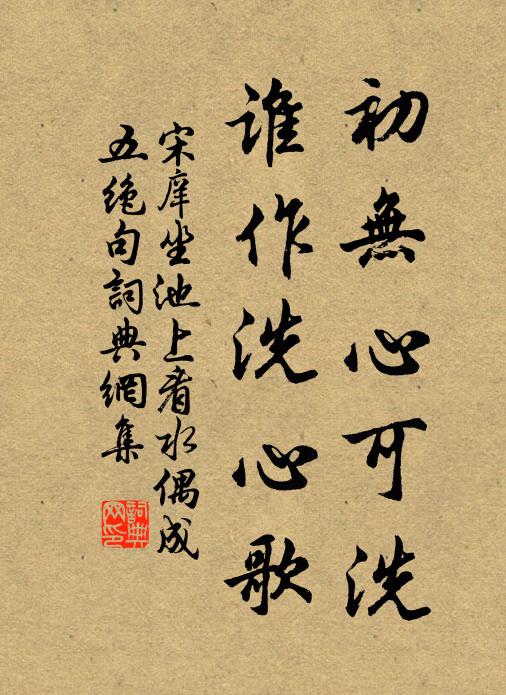 初無心可洗
誰作洗心歌
宋庠坐池上看水偶成
五絕句詞典網集
詞典
网印